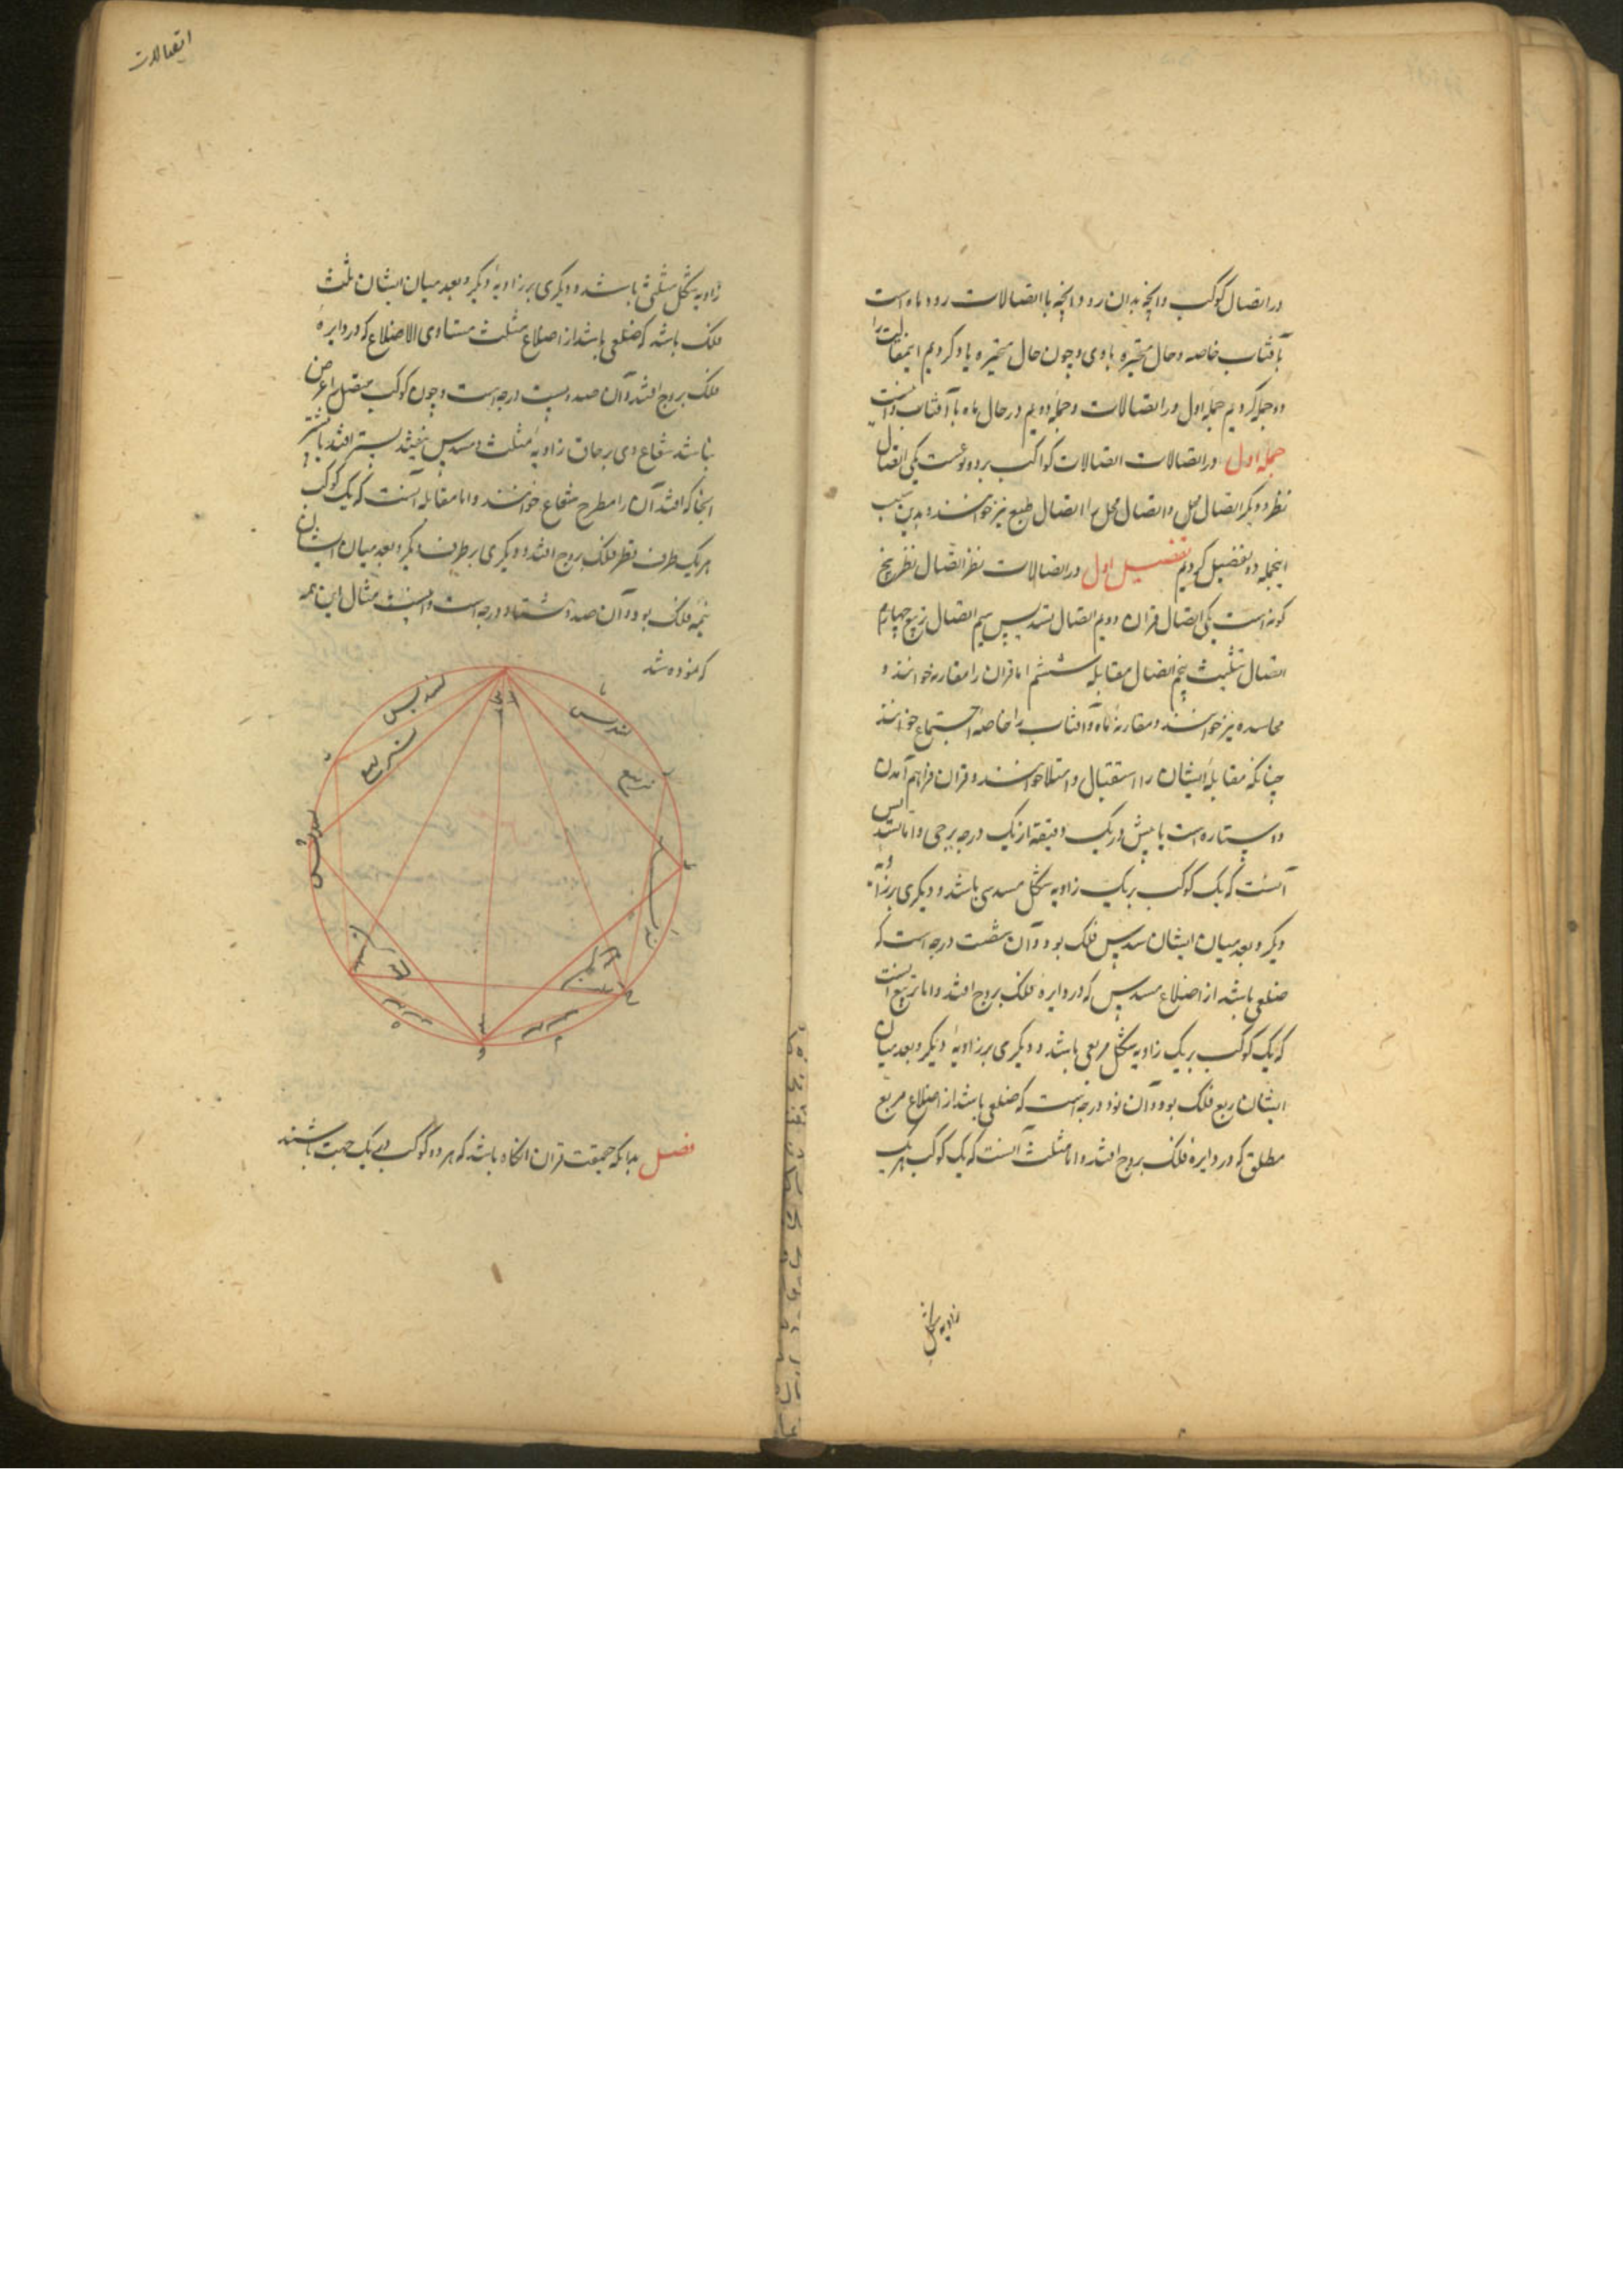 در اتصال کوکب و آنچه بدان رود و آنچه با اتصالات رود ماه است
بآفتاب خاصه و حال متحیره با وی و چون حال متحیره یاد کردیم این مقالت را
دو جمله کردیم جمله اول در اتصالات و جمله دویم در حال ماه با آفتاب و
جمله اول در اتصالات اتصالات کواکب بر دو نوعست یکی اتصال
نظر و دیگر اتصال محل و اتصال محل را اتصال طبع نیز خوانند و بدین سبب
اینجمله دو تفضیل کردیم تفضیل اول در اتصالات نظر اتصال نظر پنج
گونه است یکی اتصال قران دویم اتصال تسدیس سیم اتصال تربیع چهارم
اتصال تثلیث پنجم اتصال مقابله ششم اما قران را مقارنه خوانند و
مجاسده نیز خوانند و مقارنهٔ ماه و آفتاب را خاصهٔ اجتماع خوانند
چنانکه مقابلهٔ ایشان را استقبال و امتلا خوانند و قران فراهم آمدن
دو ستاره است یا بیش در یک دقیقه از یک درجه برجی و اما تسدیس
آنست که یک کوکب بر یک زاویه شکل مسدسی باشد و دیگری بر زاویه
دیگر و بعد میان ایشان سدس فلک بود و آن شصت درجه است که
ضلعی باشد از اضلاع مسدس که در دایرهٔ فلک بروج افتد و اما تربیع آنست
که یک کوکب بر یک زاویه شکل مربعی باشد و دیگری بر زاویهٔ دیگر و بعد میان
ایشان ربع فلک بود و آن نود درجه است که ضلعی باشد از اضلاع مربع
مطلق که در دایره فلک بروج افتد و اما مثلث آنست که یک کوکب بر یک
زاویه شکل
اتصالات
زاویه شکل مثلثی باشد و دیگری بر زاویهٔ دیگر و بعد میان ایشان ثلث
فلک باشد که ضلعی باشد از اضلاع مثلث متساوی الاضلاع که در دایرهٔ
فلک بروج افتد و آن صد و بیست درجه است و چون کوکب متصل را عرض
باشد شعاع وی بر حاق زاویهٔ مثلث و مسدس نیفتد
آنجا که افتد آن را مطرح شعاع خوانند و اما مقابله آنست که یک کوکب
بر یک طرف قطر فلک بروج افتد و دیگری بر طرف دیگر و بعد میان ایشان
نیمهٔ فلک بود و آن صد و هشتاد درجه است و اینست مثال این همه
که نموده شد
تسدیس
تسدیس
تربیع
تربیع
فصل بدانکه حقیقت قران آنگاه باشد که هر دو کوکب در یک جهت باشند